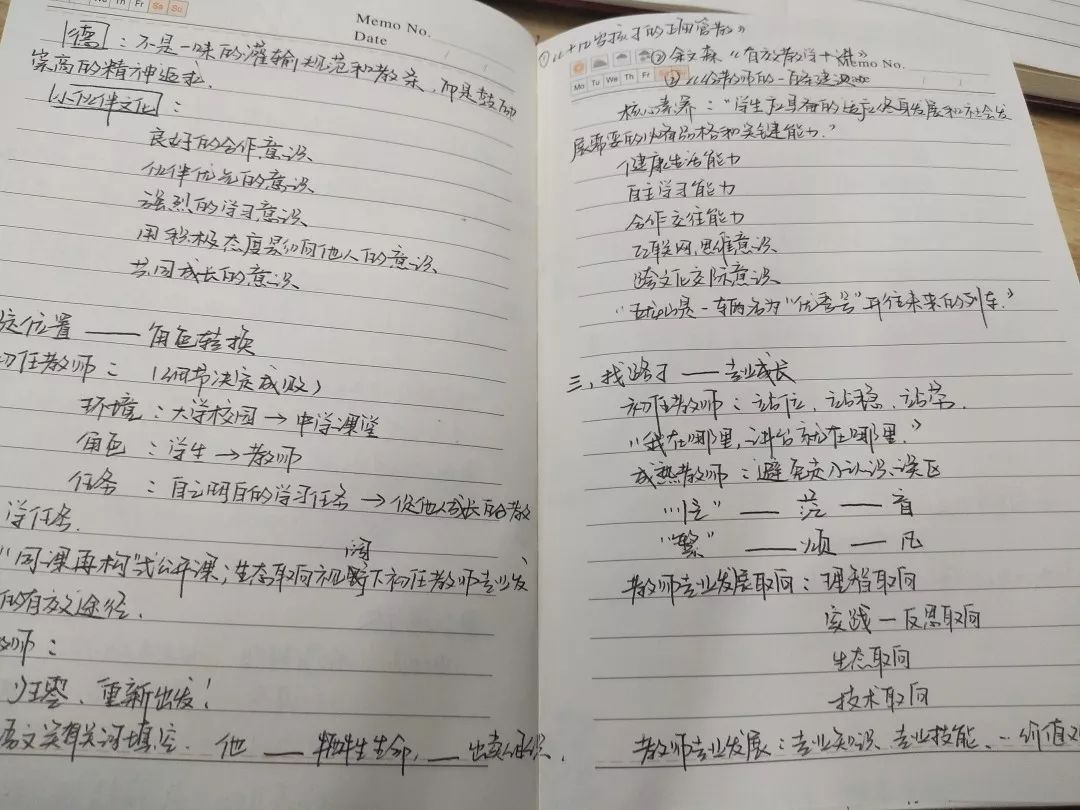 Mo Tu We Th Fr Sa Su
Memo No.
Date
德：不是一味的灌输规范和教条，而是鼓励
崇高的精神追求
小伙伴文化：
良好的合作意识
伙伴优先的意识
强烈的学习意识
用积极态度影响他人的意识
共同成长的意识
定位置——角色转换
初任教师：（细节决定成败）
环境：大学校园→中学课堂
角色：学生→教师
任务：自己明白的学习任务→促他人成长的教
学任务.
"同课再构"式公开课；生态取向视阈下初任教师专业发
的有效途径.
教师：
归零、重新出发！
语文关联词填空. 他——牺牲生命，——出卖组织.
①《6-12岁孩子的正确管教》
②余文森《有效教学十讲》
③《给教师的一百条建议》
Memo No.
Date
Mo Tu We Th Fr
核心素养："学生应具备的适应终身发展和社会发
展需要的必备品格和关键能力."
健康生活能力
自主学习能力
合作交往能力
互联网思维意识
跨文化交际意识
是一辆名为"优秀号"开往未来的列车."
三、找路子——专业成长
初任教师：站位、站稳、站学.
"我在哪里，讲台就在哪里."
成熟教师：避免定力认识误区
"忙"——茫——盲
"繁"——烦——凡
教师专业发展取向：理智取向
实践—反思取向
生态取向
技术取向
教师专业发展：专业知识、专业技能、…价值观